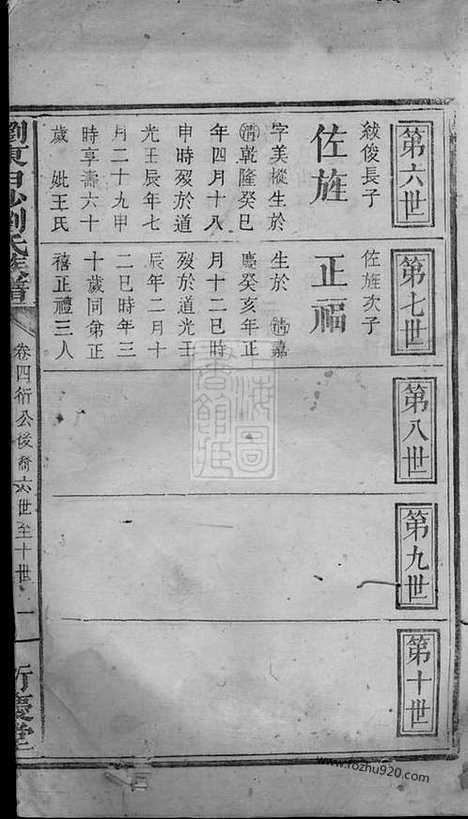 第六世
紱俊長子
佐旌
字美樅生於
清乾隆癸巳
年四月十八
申時歿於道
光壬辰年七
月二十九申
時享壽六十
歲 妣王氏
第七世
佐旌次子
正福
生於 清嘉
慶癸亥年正
月十二巳時
歿於道光壬
辰年二月十
二巳時年三
十歲同弟正
禧正禮三人
第八世
第九世
第十世
劉氏族譜
卷四衍公後裔六世至十世
一
慶堂
上海圖書館藏
www.fozhu920.com